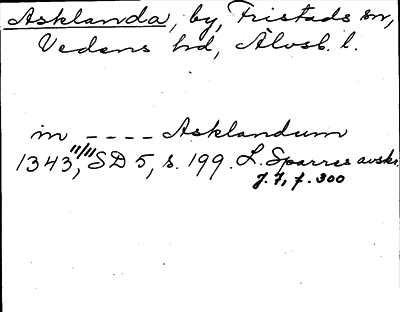 Asklanda, by, Fristads sn,
Vedens hd, Älvsb. l.
in ---- Asklandum
1343 11/11, SD 5, s. 199. L. Sparres avskr.
f. 300